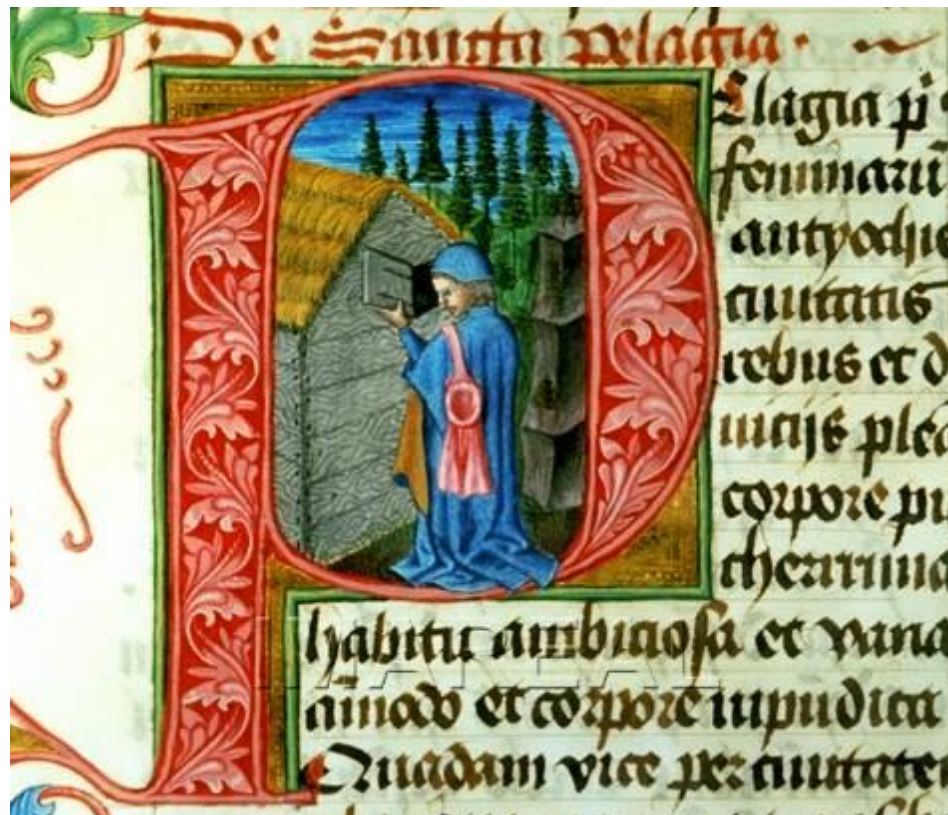 De Sancta Pelagia.
Elagia p̄
feminarū
antyochie
ciuitatis
rebus et d
uicijs ple
corpore pu
cherrima
habitu ambiciosa et vana
aīmo et corpore inpudica
Quadam vice per ciuitate
IMAREAL